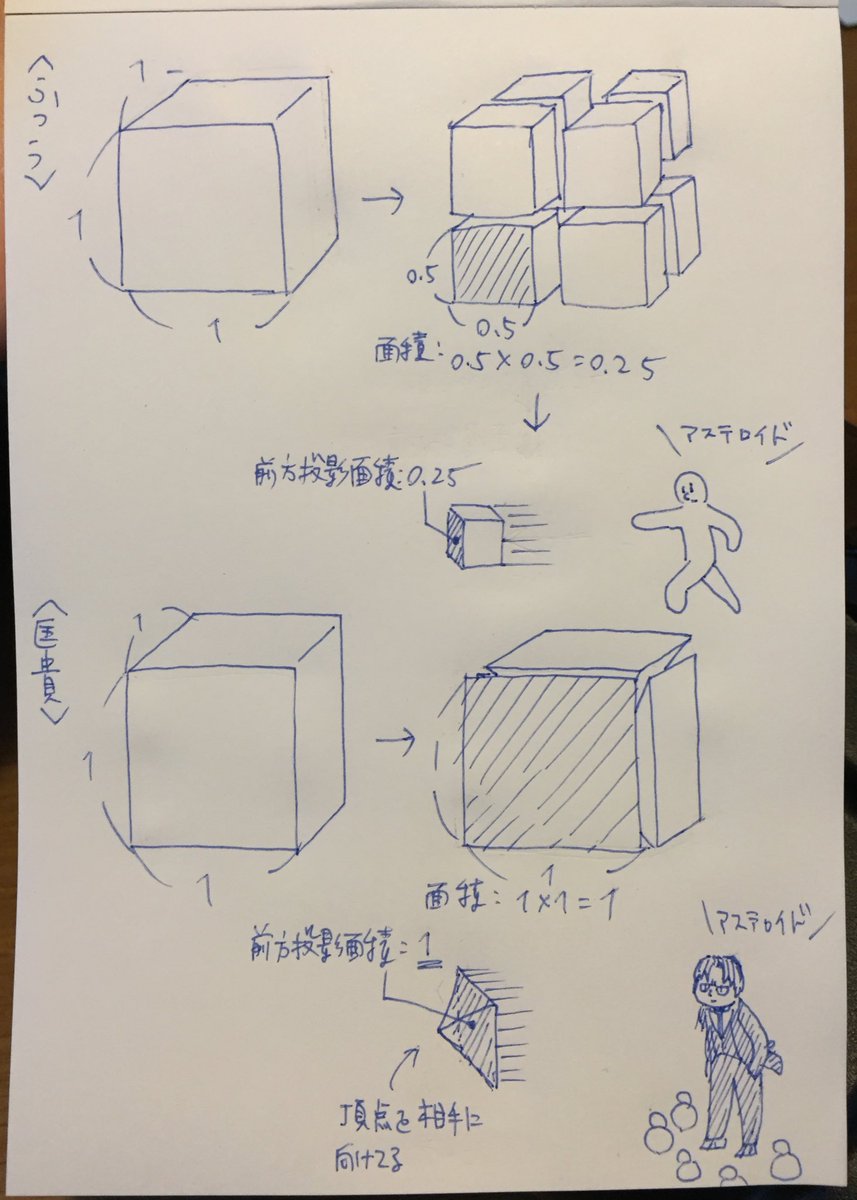 〈ふつう〉
1
1
1
→
0.5
0.5
面積：0.5×0.5＝0.25
↓
＼アステロイド／
前方投影面積：0.25
〈匡貴〉
1
1
1
→
1
1
面積：1×1＝1
＼アステロイド／
前方投影面積：1
頂点を相手に
向けてる